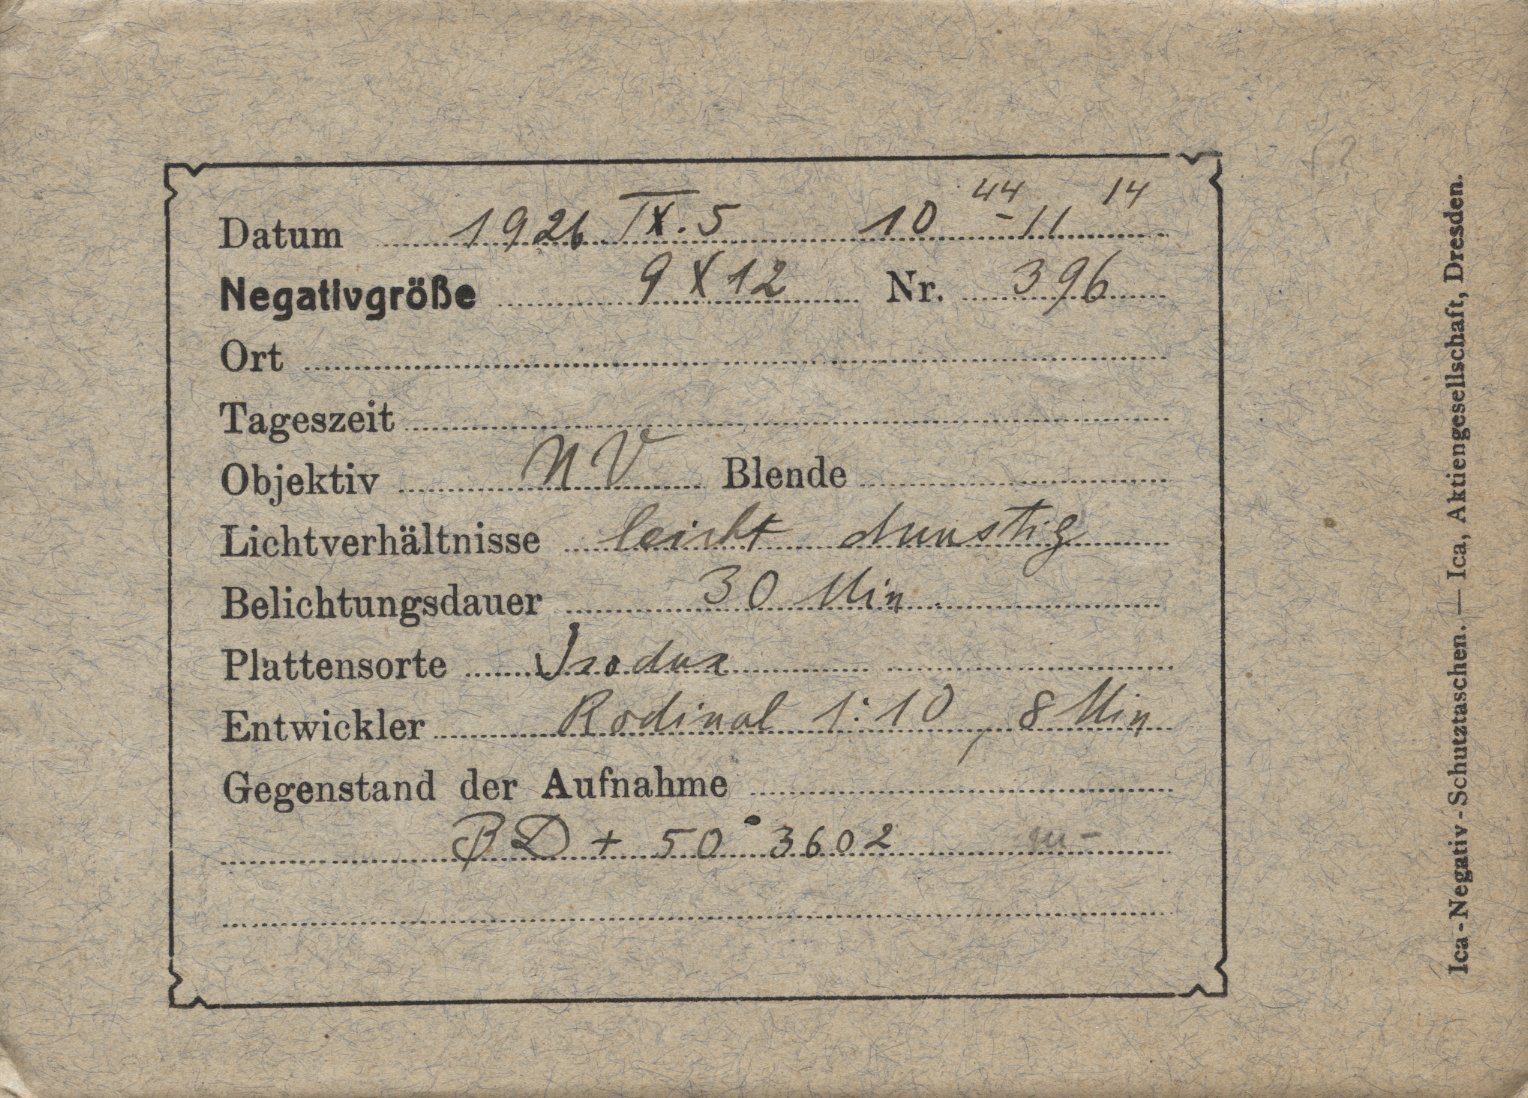 Datum 1926 IX. 5 10 44 - 11 14
Negativgröße 9 X 12 Nr. 396
Ort
Tageszeit
Objektiv NV Blende
Lichtverhältnisse leicht dunstig
Belichtungsdauer 30 Min.
Plattensorte Isodux
Entwickler Rodinal 1:10, 8 Min
Gegenstand der Aufnahme
BD + 50° 3602
Ica-Negativ-Schutztaschen. — Ica, Aktiengesellschaft, Dresden.